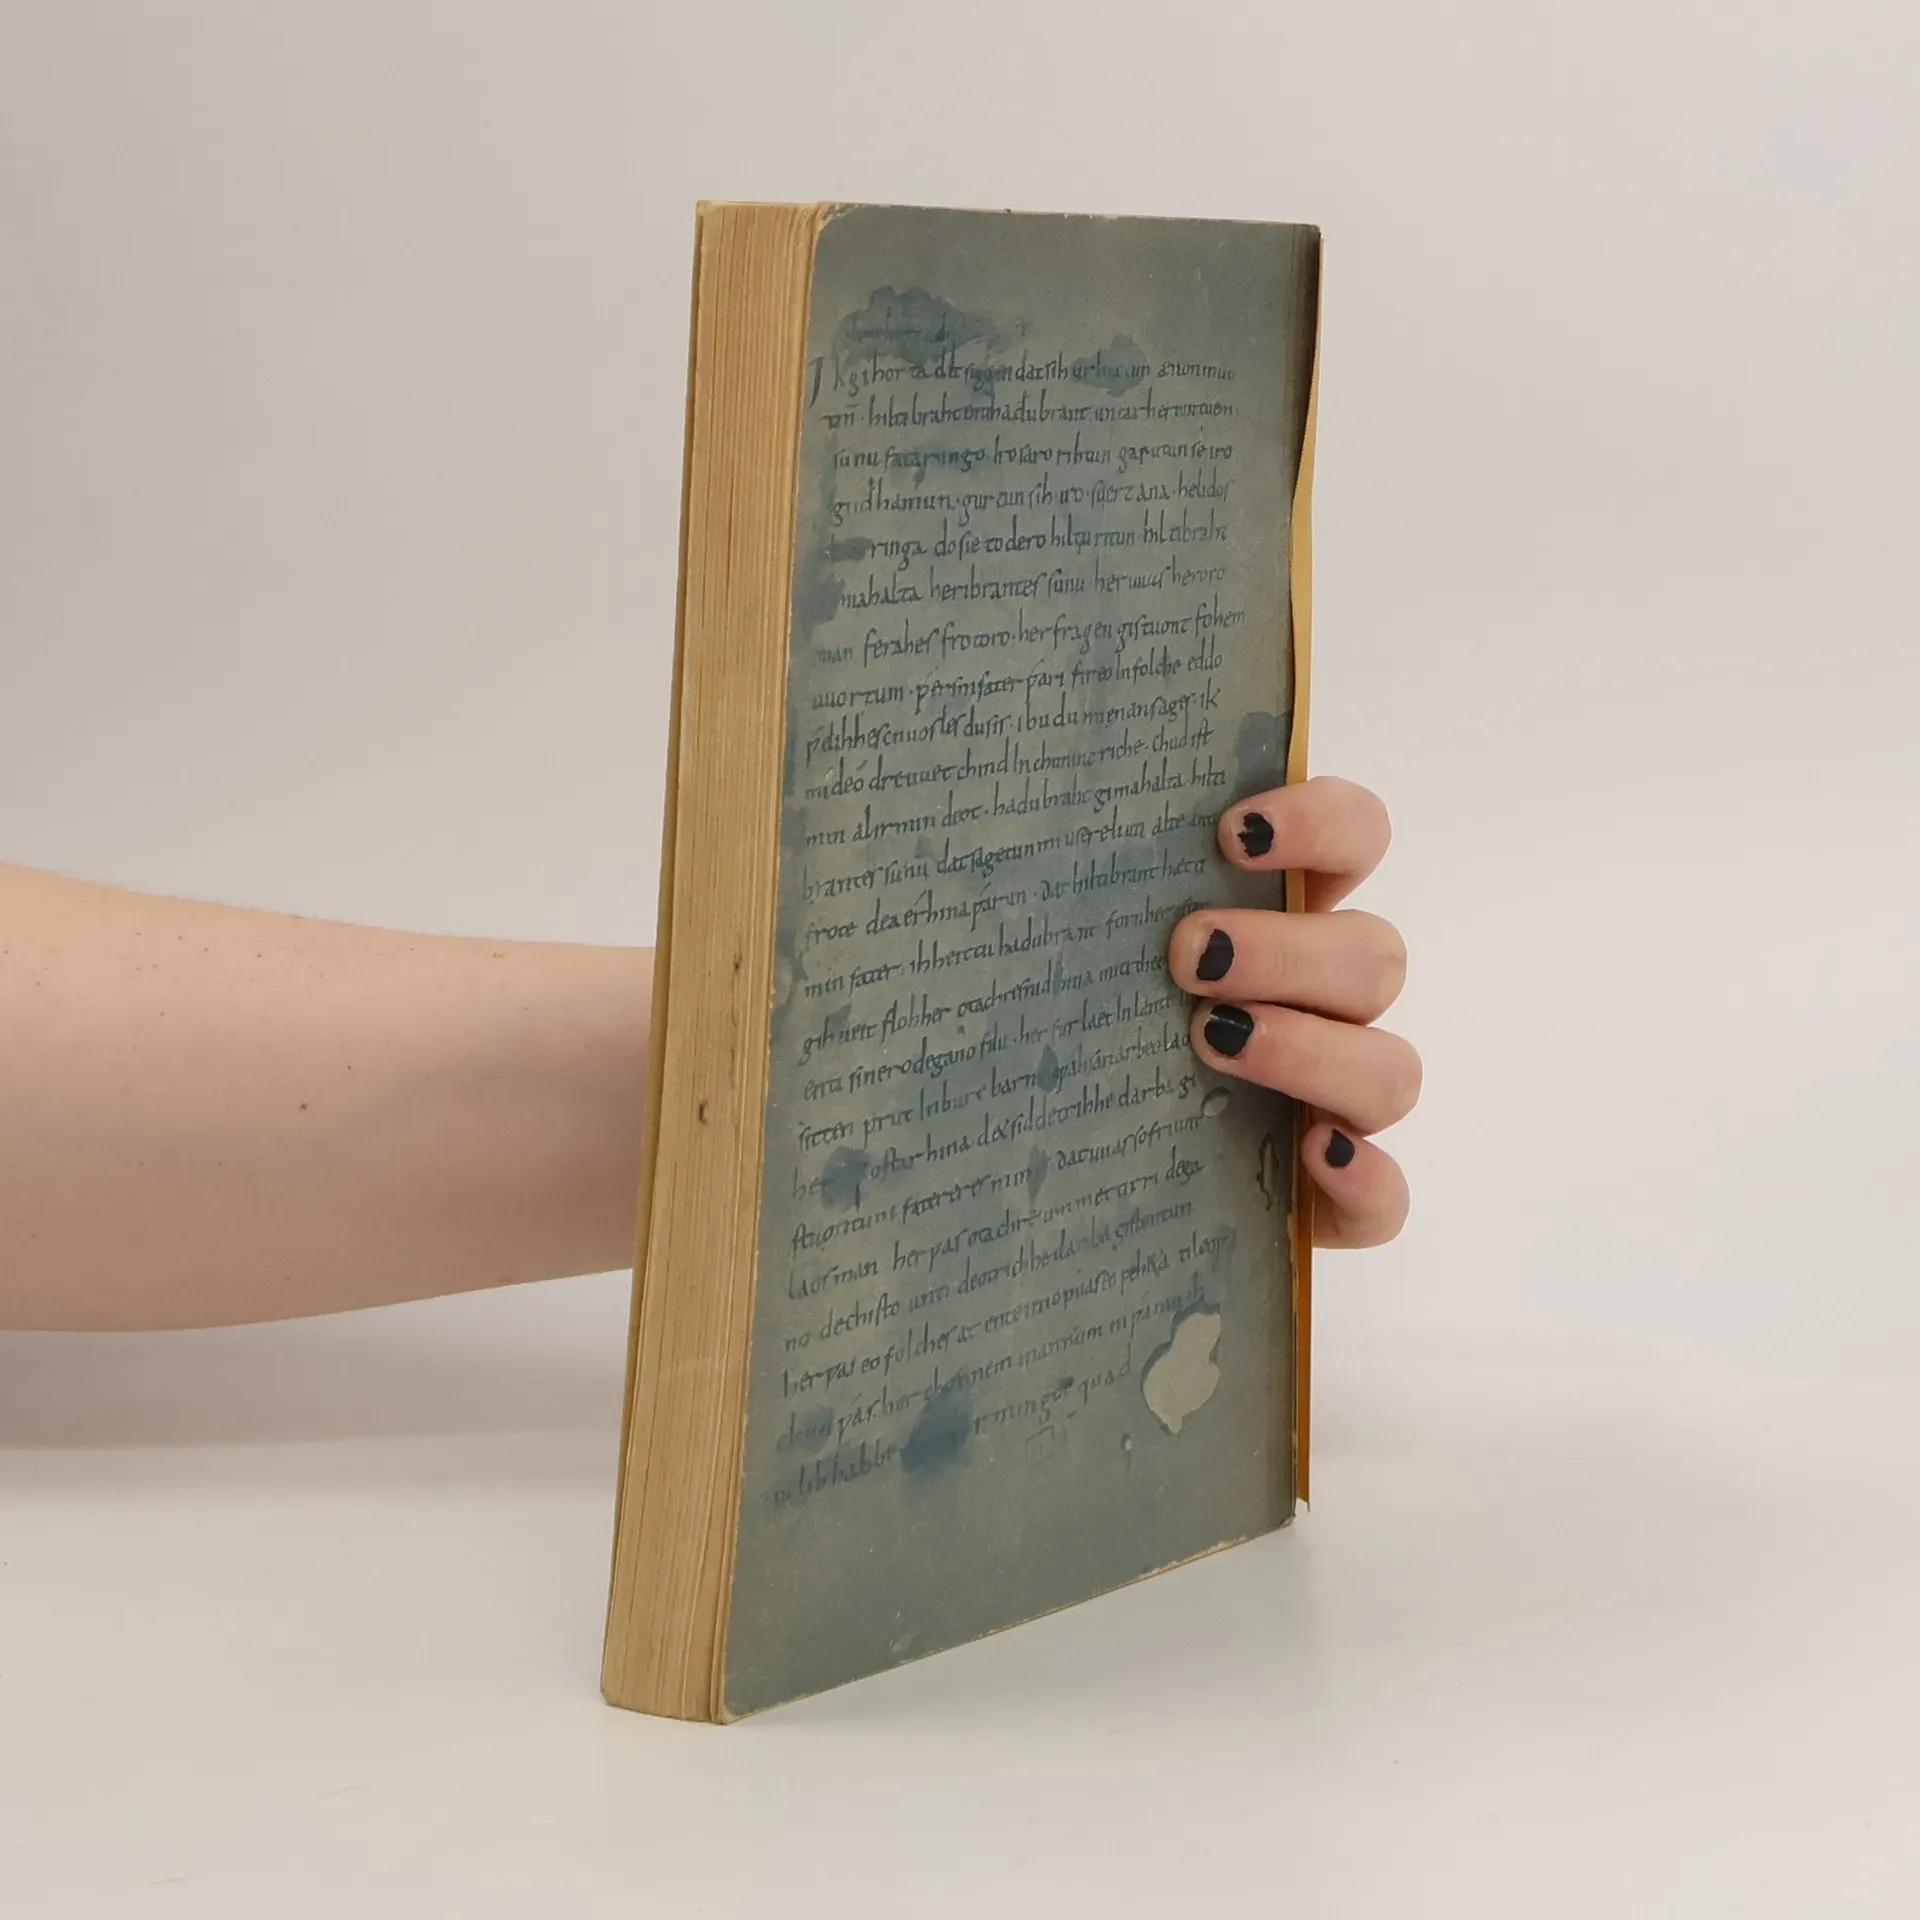 Ik gihorta đat seggen dat sih urhettun ænon muo
tin · hiltibraht enti hađubrant untar heriun tuem
sunu fatarungo · iro saro rihtun garutun se iro
gudhamun · gurtun sih · iro · suert ana · helidos
ringa do sie to dero hiltu ritun · hiltibraht
gimahalta heribrantes sunu · her uuas heroro
man ferahes frotoro · her fragen gistuont fohem
uuortum · ƿer sin fater ƿari fireo In folche eddo
ƿelihhes cnuosles du sis · ibu du mi enan sages · ik
mi de odre uuet chind In chunincriche · Chud ist
min al irmin deot · hadubraht gimahalta hilti
brantes sunu dat sagetun mi usere liuti alte anti
frote dea erhina ƿarun · dat hiltibrant hætti
min fater · ih heittu hadubrant forn her ostar
gih ueit floh her otachres nid hina miti theo
enti sinero degano filu · her fur laet In lante
sitten prut In bure barn unƿahsan arbeo laosa
ostar hina det sid detrihhe darba gi
stuontum fatereres min dat uuas so friunt
laos man her ƿas otachre ummet tirri dega
no dechisto unti deotrichhe darba gistontun
her ƿas eo folches at ente imo ƿuas eo feheta ti leop
chud ƿas her chonnem mannum ni ƿaniu ih
iu lib habbe irmingot quad